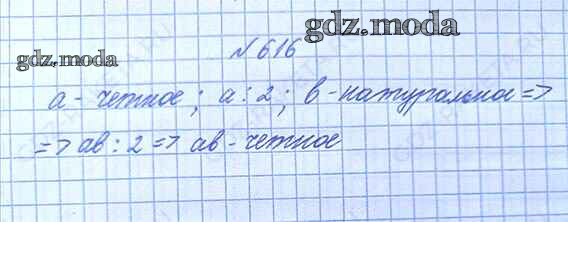 gdz.moda
№ 616
gdz.moda
а - четное ; а : 2 ; в - натуральное =>
=> ав : 2 => ав - четное